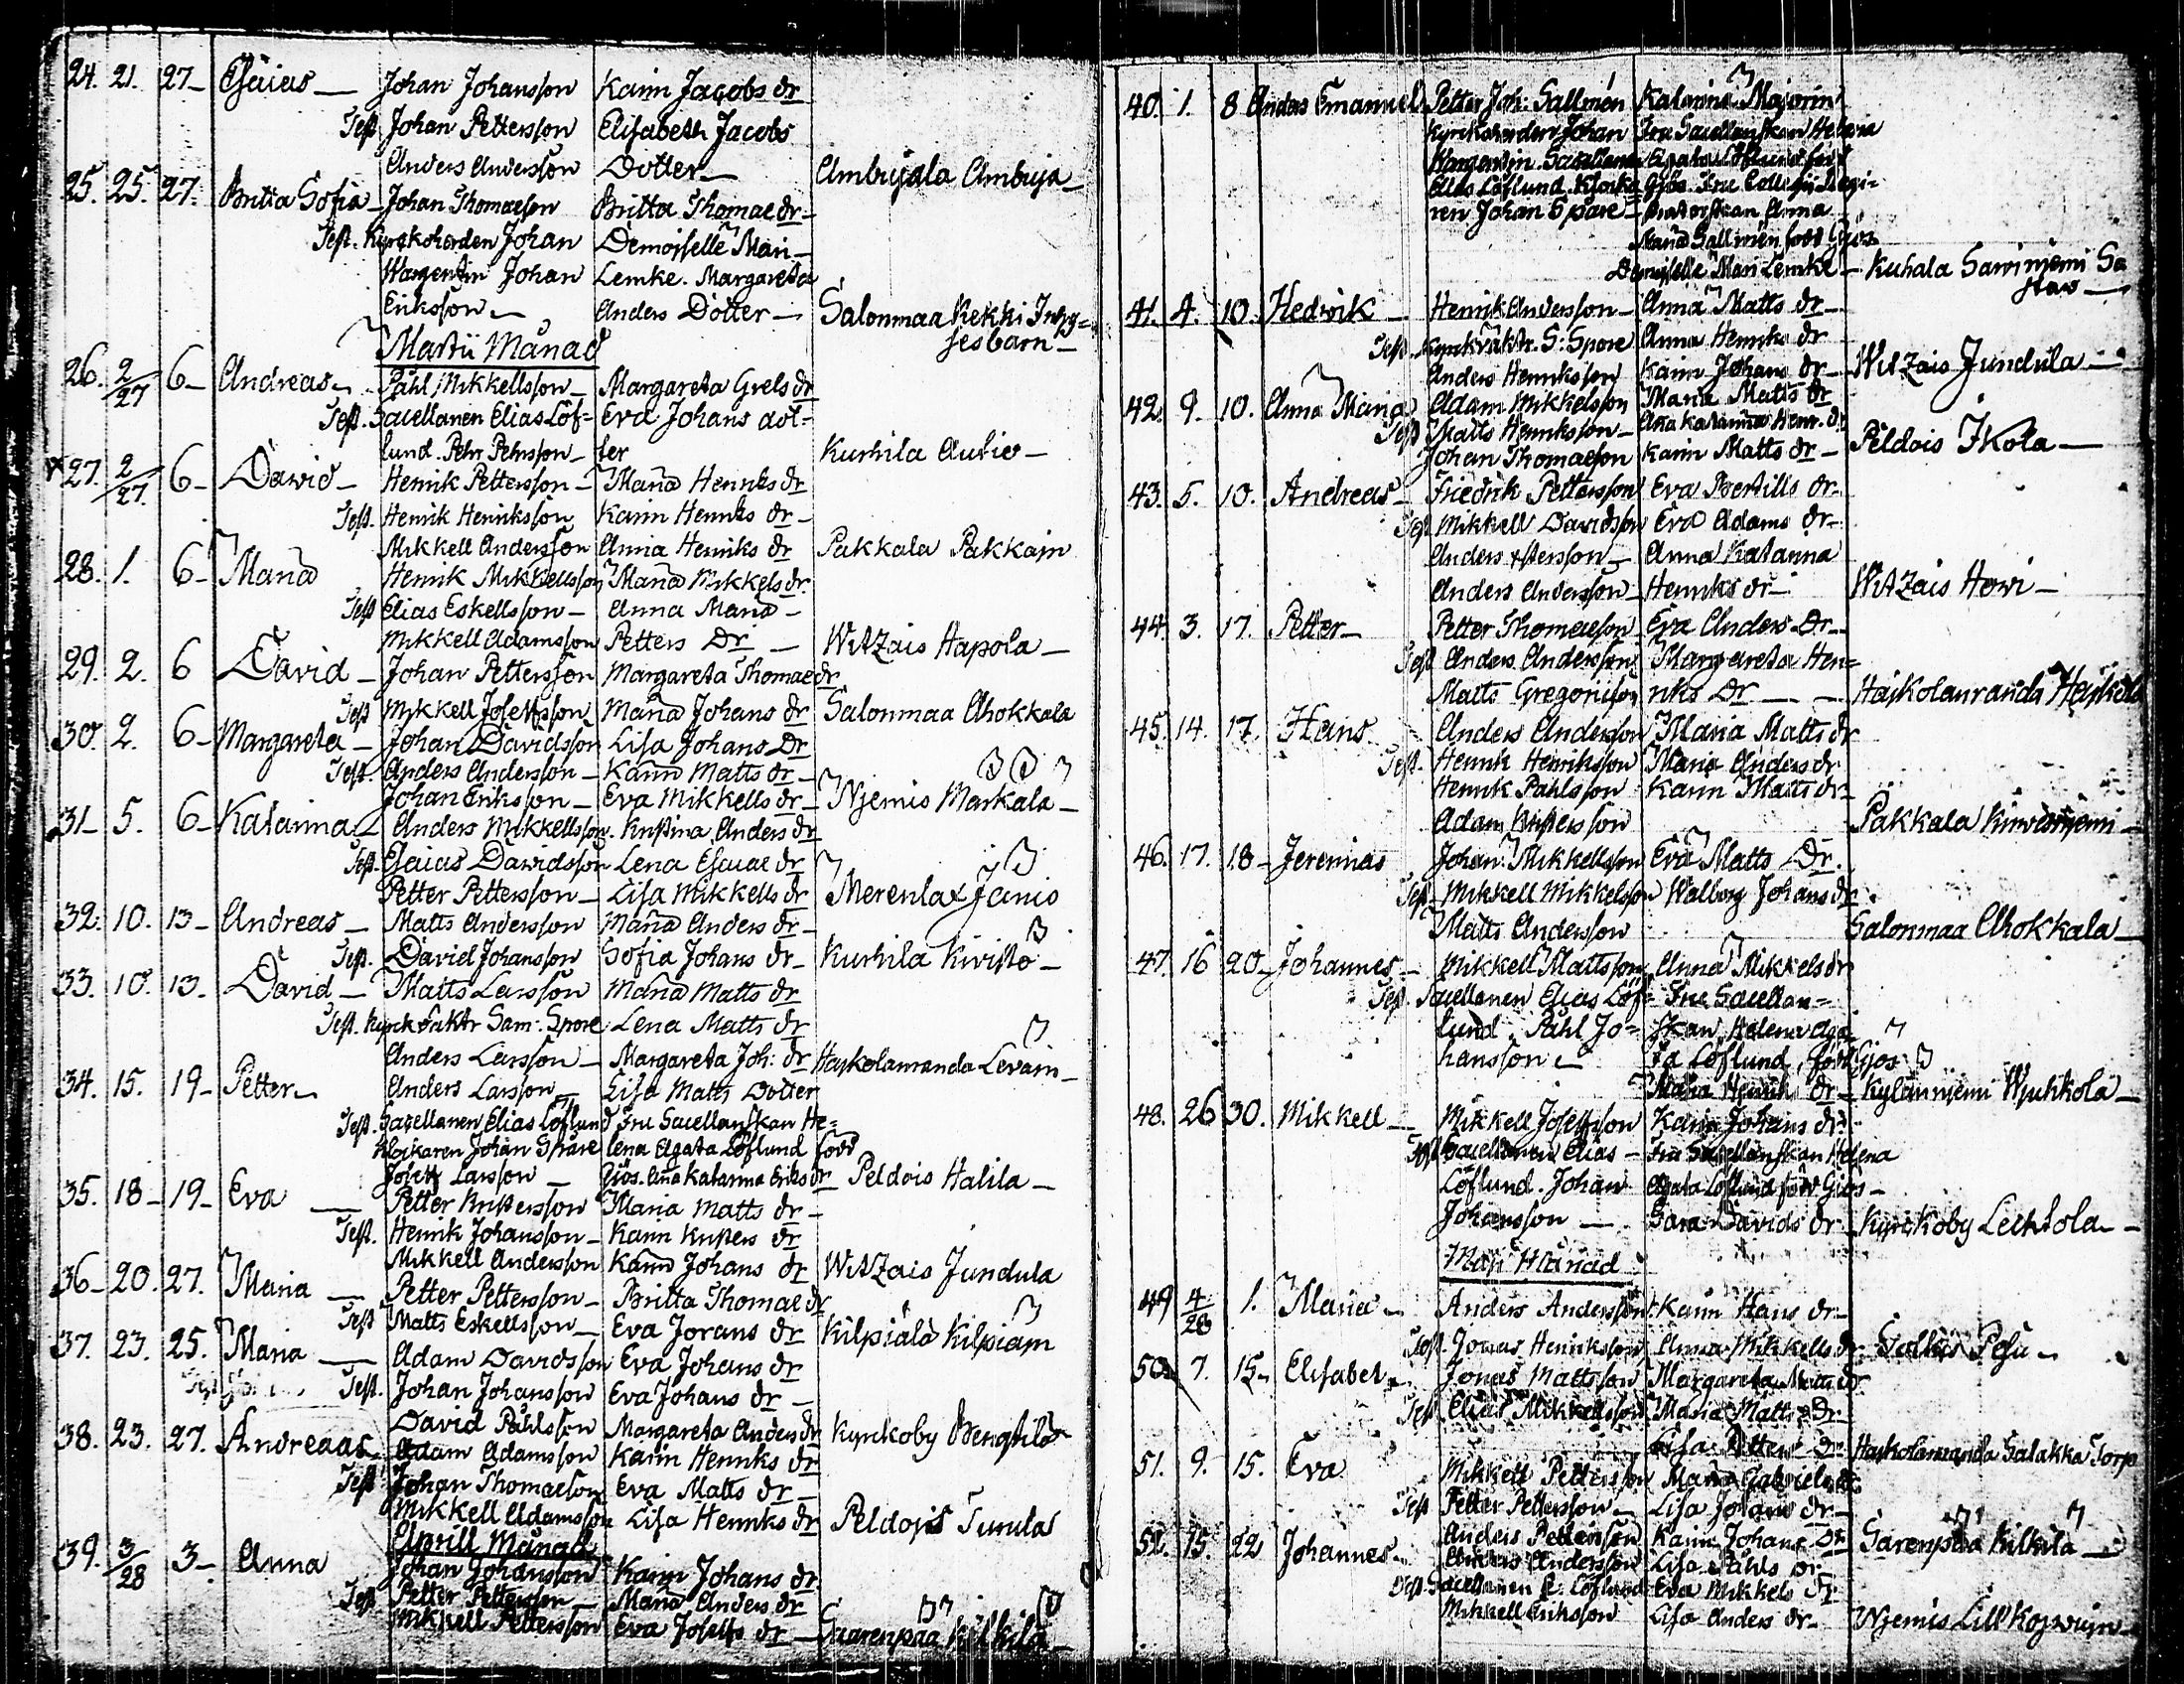 24. 21. 27 – Esaias — Johan Johansson Karin Jacobs dr
Test. Johan Pettersson Elisabeth Jacobs
Anders Andersson Dotter — Ambujala Ambuja —
25. 25. 27. Britta Sofia – Johan Thomaeson Britta Thomae dr –
Test. Kyrckoherden Johan Demoiselle Mari –
Wargentin Johan Lemke. Margareta
Eriksson – Anders Dotter – Salonmaa Kekki Inhy=
sesbarn –
Martii Månad
26. 2/27 6 – Andreas – Påhl Mikkellsson – Margareta Grels dr
Test. Sacellanen Elias Löf= Eva Johans dot=
lund. Pehr Pehrsson – ter Kurhila Autio –
x 27. 2/27. 6 – David – Henrik Pettersson – Maria Henriks dr
Test. Henrik Henriksson Karin Henriks dr –
Mikkell Andersson Anna Henriks dr Pakkala Pakkain
28. 1. 6 – Maria Henrik Mikkellsson Maria Mikkels dr.
Test Elias Eskellsson – Anna Maria –
Mikkell Adamsson Petters Dr – Witzais Hapola –
29. 2. 6 David – Johan Pettersson Margareta Thomae dr
Test Mikkell Josefsson Maria Johans dr Salonmaa Ahokkala
30. 2. 6 – Margareta – Johan Davidsson Lisa Johans Dr
Test. Anders Andersson – Karin Matts dr –
Johan Eriksson – Eva Mikkells dr – Njemis Markala –
31 – 5. 6 – Katarina – Anders Mikkellsson. Kristina Anders dr
Test. Esaias Davidsson Lena Esaiae dr
Petter Pettersson – Lisa Mikkells dr Merenlax Janis
32. 10. 13 – Andreas – Matts Andersson Maria Anders dr –
Test. David Johansson Sofia Johans dr – Kurhila Kivistö –
33. 10. 13 – David – Matts Larsson Maria Matts dr
Test. Kyrckvaktr Sam. Spore Lena Matts dr
Anders Larsson – Margareta Joh: dr Haskolanranda Levain –
34. 15. 19 – Petter – Anders Larsson – Lisa Matts Dotter
Test. Sacellanen Elias Löflund Fru Sacellanskan He=
Klockaren Johan Spåre lena Agata Löflund född
Josef Larsson – Giös. Ana Katarina Eriks dr – Peldois Halila –
35. 18 – 19 – Eva — Petter Kristersson Maria Matts dr –
Test. Henrik Johansson – Karin Kristers dr
Mikkell Andersson Karin Johans dr Witzais Jundula
36 – 20. 27. Maria — Petter Pettersson – Britta Thomae dr
Test Matts Eskellsson – Eva Jorans dr Kilpiälä Kilpiäin
37. 23. 25. Maria — Adam Davidsson Eva Johans dr
Test. Johan Johansson Eva Johans dr –
David Påhlsson Margareta Anders dr Kyrckoby Bengtilä
38. 23. 27. Andreas – Adam Adamsson Karin Henriks dr
Test Johan Thomaeson Eva Matts dr –
Mikkell Adamsson Lisa Henriks dr Peldois
Aprill Månad
39. 3/28 3 – Anna Johan Johansson Karin Johans dr.
Test Petter Pettersson – Maria Anders dr
Mikkell Pettersson Eva Josefs dr – Saarenpää Kilkilä –
40. 1. 8 Anders Emanuel Petter Joh: Sallmén Katarina Majorin
Kyrckoherden Johan Fru Sacellanskan Helena
Wargentin. Sacellanen Agata Löflund född
Elias Löflund. Klocka= Giös. Fru Collegii Regi=
ren Johan Spåre – stratorskan Anna
Maria Sallmén född Giös
Demoiselle Mari Lemke – Kuhala Savinjemi Sa
41. 4. 10. Hedvik – Henrik Andersson – Anna Matts dr –
Test. Kyrckvaktr. S: Spore Anna Henriks dr
Anders Henriksson Karin Johans dr – Witzais Jundula –
42. 9. 10. Anna Maria Adam Mikkelsson Maria Matts dr
Test Matts Henriksson – Ana Katarina Henr. dr
Johan Thomaeson Karin Matts dr – Peldois Ikola –
43. 5. 10. Andreas – Friedrik Pettersson Eva Bertills dr –
Test Mikkell Davidsson Eva Adams dr –
Anders – Anna Katarina
Anders Andersson – Henriks dr – Witzais Howi –
44. 3. 17. Petter – Petter Thomaeson Eva Anders Dr –
Test Anders Andersson Margareta Hen=
Matts Gregorisson riks Dr – – Haskolanranda
45. 14. 17. Hans Anders Andersson Maria Matts dr
Test. Henrik Henriksson Maria Anders dr
Henrik Påhlsson Karin Matts dr –
Adam Kristersson Pakkala
46. 17. 18 – Jeremias Johan Mikkellsson Eva Matts Dr.
Test – Mikkell Mikkelsson Walborg Johans dr
Matts Andersson Salonmaa Ahokkala –
47. 16 20 – Johannes – Mikkell Mattsson Anna Mikkels dr
Test. Sacellanen Elias Löf= Fru Sacellan=
lund. Påhl Jo= skan Helena Aga
hansson – ta Löflund, född Giös.
Maria Henriks dr – Kylänniemi Wjuhkola –
48. 26 30. Mikkell – Mikkell Josefsson Karin Johans dr.
Test Sacellanen Elias – Fru Sacellanskan Helena
Löflund. Johan Agata Löflund född Giös –
Johansson – Sara Davids dr Kyrckoby Lechtola –
Maji Månad
49 4/28 1. Maria – Anders Andersson Karin Hans dr –
Test. Jonas Henriksson Anna Mikkells dr
50. 7. 15 – Elisabet – Jonas Mattsson Margareta Matts dr
Test Elias Mikkellsson Maria Matts dr –
Lisa Petters Dr Haskolanranda Salakka Torp
51. 9. 15. Eva Mikkell Pettersson Maria Gabriels dr
Test Petter Pettersson – Lisa Johans dr –
Anders Pettersson Karin Johans Dr Sarenpää Kilkilä –
52. 15. 22 Johannes – Anders Andersson Lisa Påhls dr
Test. Sacellanen E. Löflund Eva Mikkels dr
Mikkell Eriksson Lisa Anders dr – Njemis